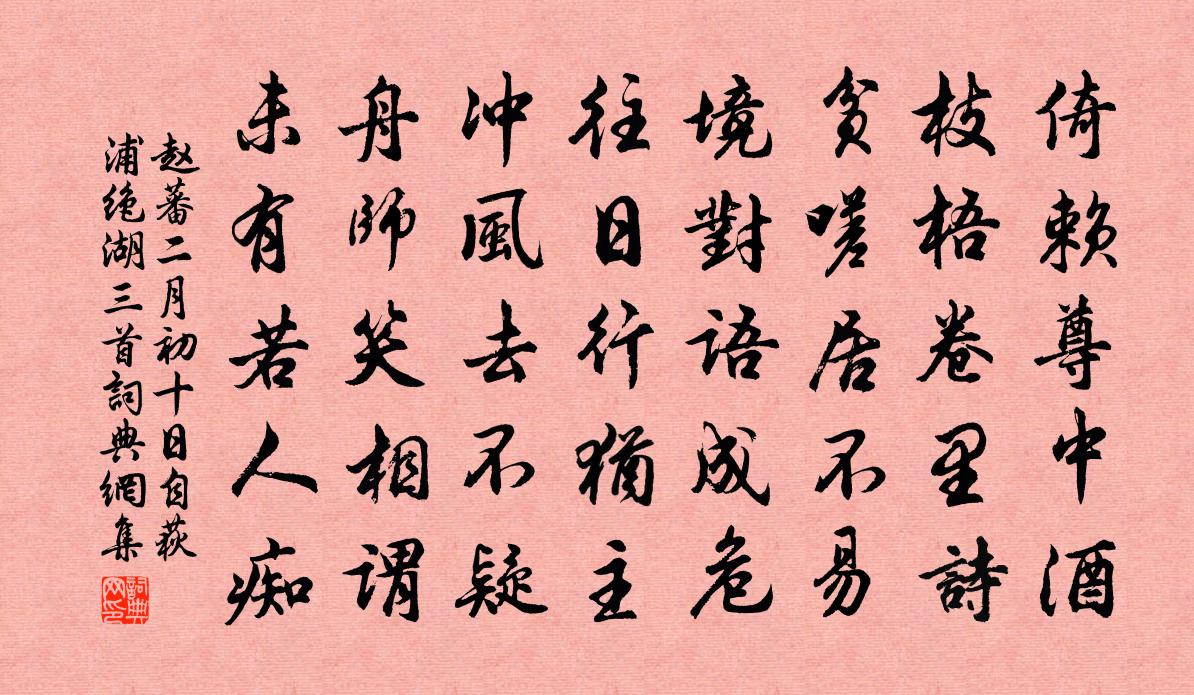 倚赖尊中酒
枝梧卷里詩
貧嗟居不易
境對語成危
往日行猶主
冲風去不疑
舟師笑相謂
未有若人痴
赵蕃二月初十日自荻
浦绝湖三首詞典網集
詞典網印